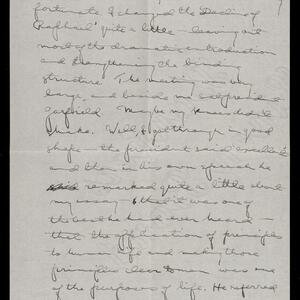 fortunate I changed the Decline of
Raphael quite a little - leaving out
most of the dramatic introduction
and strengthening the binding
structure. The meeting was very
large, and beside me sat president
Garfield. Maybe my knees didn't
shake. Well, I got through in good
shape - the president said excellent
and then in his own speech he
remarked quite a little about
my essay - that it was one of
the best he had ever heard -
that the application of principles
to human life and making those
principles clear to men was one
of the purposes of life. He referred